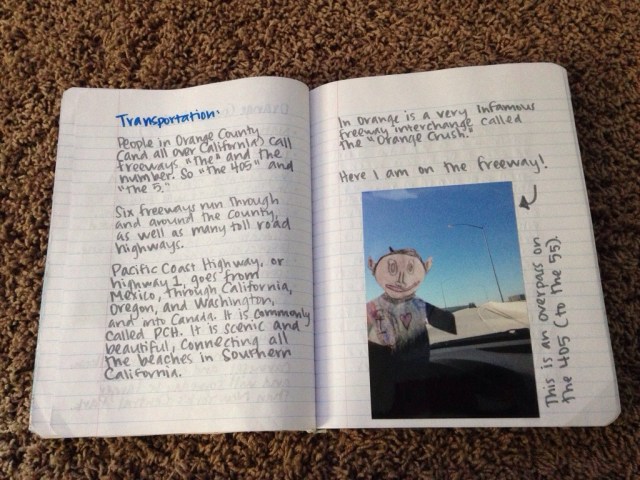 Transportation:
People in Orange County
(and all over California) call
freeways "the" and the
number. So "the 405" and
"the 5."
Six freeways run through
and around the county,
as well as many toll road
highways.
Pacific Coast Highway, or
highway 1, goes from
Mexico, through California,
Oregon, and Washington,
and into Canada. It is commonly
called PCH. It is scenic and
beautiful, connecting all
the beaches in Southern
California.
In Orange is a very infamous
freeway interchange called
the "Orange Crush."
Here I am on the freeway!
This is an overpass on
the 405 (to the 55).